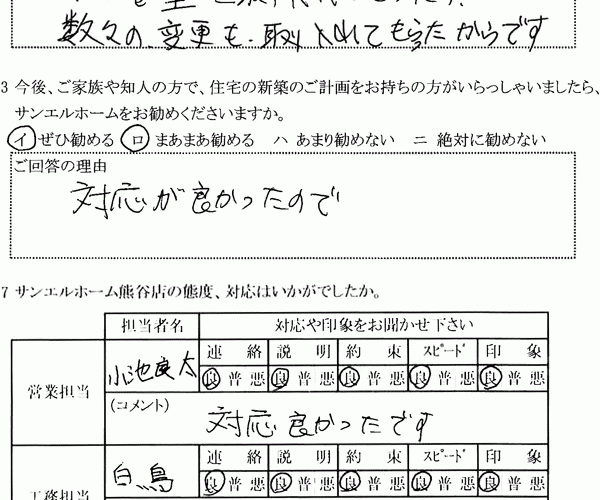 数々の、変更も、取り入れてもらえたからです
3 今後、ご家族や知人の方で、住宅の新築のご計画をお持ちの方がいらっしゃいましたら、
サンエルホームをお勧めくださいますか。
イ ぜひ勧める ロ まあまあ勧める ハ あまり勧めない ニ 絶対に勧めない
ご回答の理由
対応が良かったので
7 サンエルホーム熊谷店の態度、対応はいかがでしたか。
担当者名 対応や印象をお聞かせ下さい
営業担当 小池良太 連絡 説明 約束 スピード 印象
良 普 悪 良 普 悪 良 普 悪 良 普 悪 良 普 悪
(コメント)
対応良かったです
工務担当 白鳥 連絡 説明 約束 スピード 印象
良 普 悪 良 普 悪 良 普 悪 良 普 悪 良 普 悪